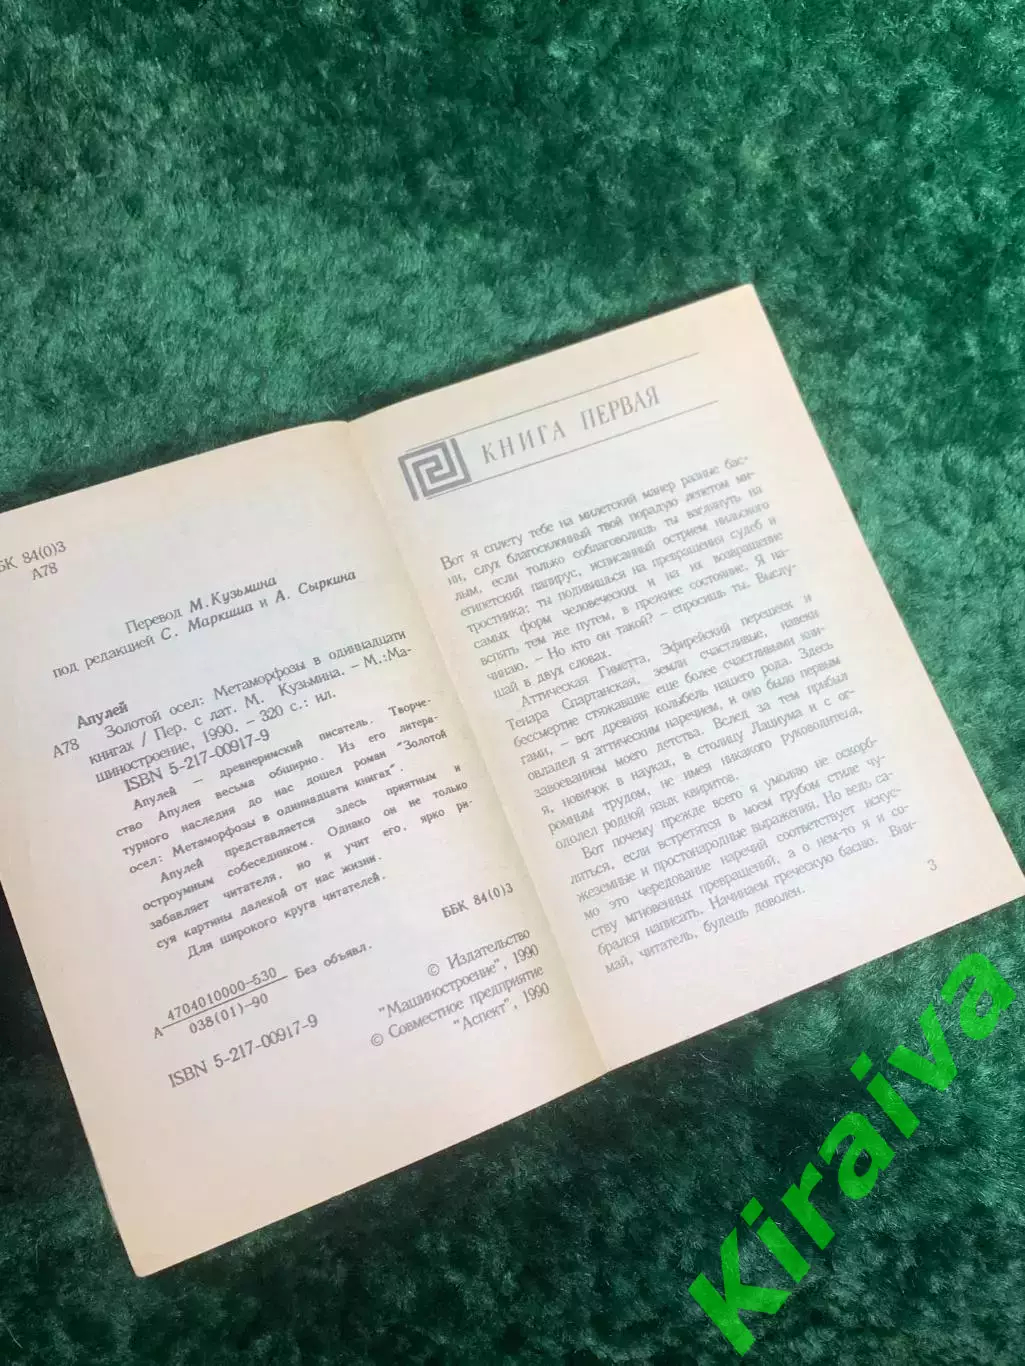 ББК 84(0)3
А78
Перевод М. Кузьмина
под редакцией С. Маркиша и А. Сыркина
Апулей
А78 Золотой осел: Метаморфозы в одиннадцати
книгах / Пер. с лат. М. Кузьмина. – М.:Ма-
шиностроение, 1990. – 320 с.: ил.
ISBN 5-217-00917-9
Апулей – древнеримский писатель. Творче-
ство Апулея весьма обширно. Из его литера-
турного наследия до нас дошел роман "Золотой
осел: Метаморфозы в одиннадцати книгах".
Апулей представляется здесь приятным и
остроумным собеседником. Однако он не только
забавляет читателя, но и учит его, ярко ри-
суя картины далекой от нас жизни.
Для широкого круга читателей.
А 4704010000-530 Без объявл.
038(01)-90
ББК 84(0)3
ISBN 5-217-00917-9
© Издательство
"Машиностроение", 1990
© Совместное предприятие
"Аспект", 1990
КНИГА ПЕРВАЯ
Вот я сплету тебе на милетский манер разные бас-
ни, слух благосклонный твой порадую лепетом ми-
лым, если только соблаговолишь ты взглянуть на
египетский папирус, исписанный острием нильского
тростника; ты подивишься на превращения судеб и
самых форм человеческих и на их возвращение
вспять тем же путем, в прежнее состояние. Я на-
чинаю. – Но кто он такой? – спросишь ты. Выслу-
шай в двух словах.
Аттическая Гиметта, Эфирейский перешеек и
Тенара Спартанская, земли счастливые, навеки
бессмертие стяжавшие еще более счастливыми кни-
гами, – вот древняя колыбель нашего рода. Здесь
овладел я аттическим наречием, и оно было первым
завоеванием моего детства. Вслед за тем прибыл
я, новичок в науках, в столицу Лациума и с ог-
ромным трудом, не имея никакого руководителя,
одолел родной язык квиритов.
Вот почему прежде всего я умоляю не оскорб-
литься, если встретятся в моем грубом стиле чу-
жеземные и простонародные выражения. Но ведь са-
мо это чередование наречий соответствует искус-
ству мгновенных превращений, а о нем-то я и со-
брался написать. Начинаем греческую басню. Вни-
май, читатель, будешь доволен.
3
Kiraiva